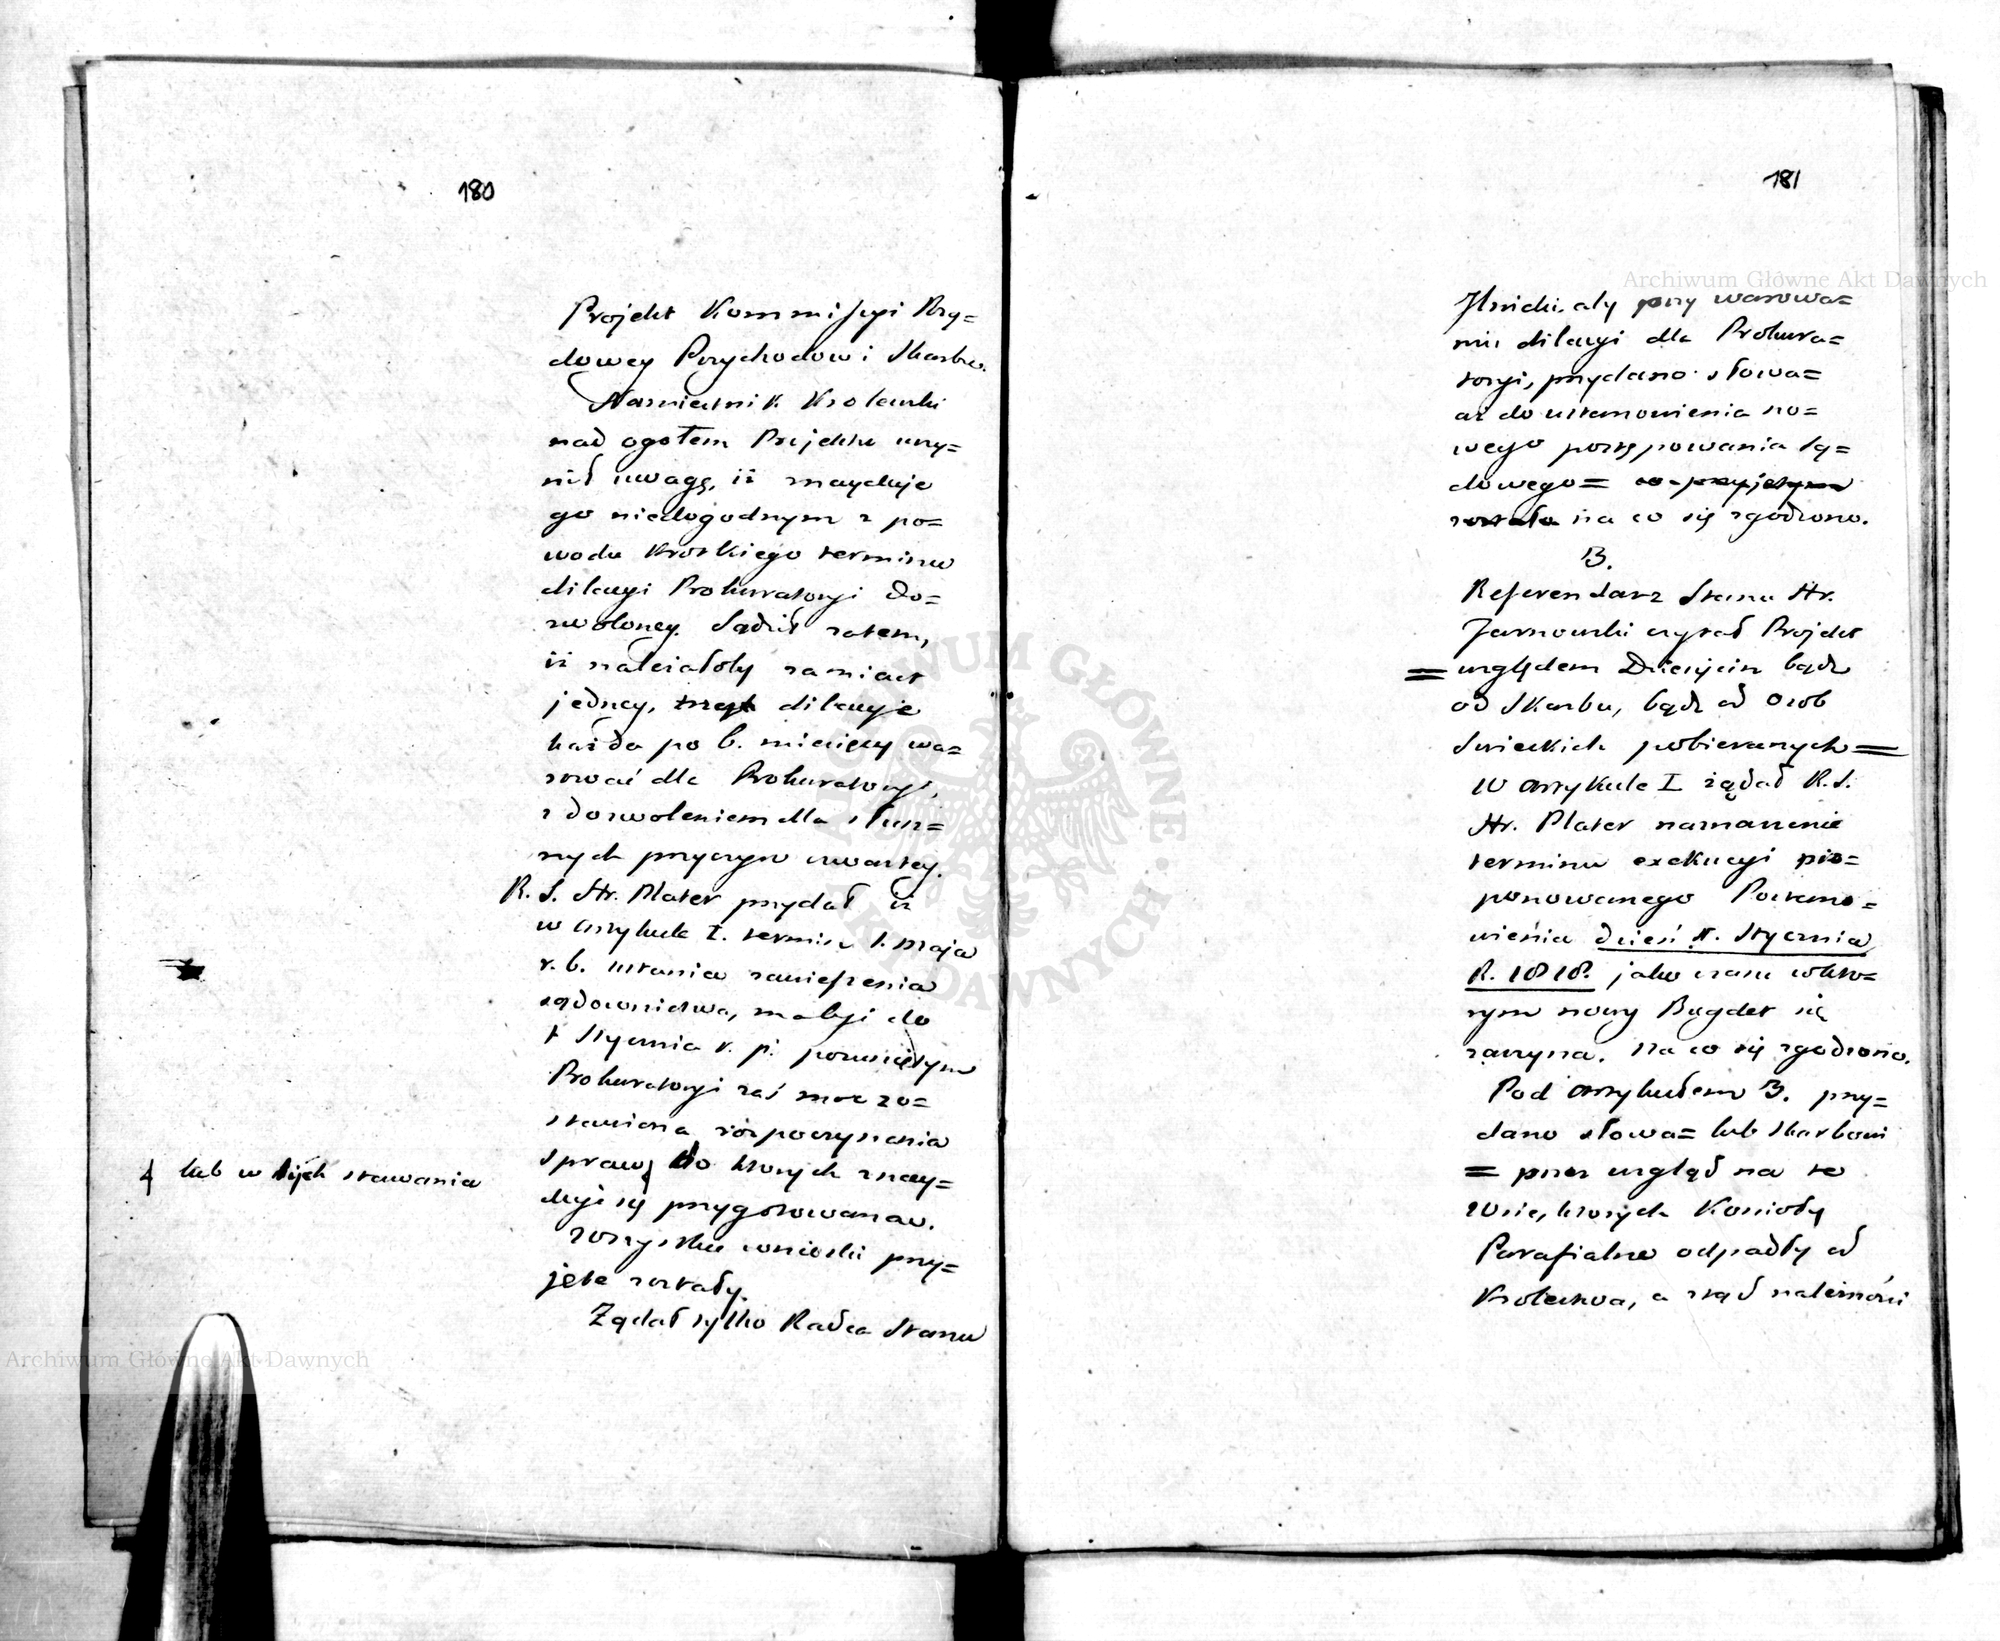 180
Projekt Kommissyi Rzą=
dowey Przychodow i Skarbu.
Namiestnik Krolewski
nad ogołem Projektu uczy=
nił uwagę, iż znayduje
go niedogodnym z po=
wodu krotkiego terminu
dilacyi Prokuratoryi do=
zwoloney. Sądził zatem,
iż należałoby zamiast
jedney, trzy dilacyje
każda po 6. miesięcy wa=
rować dla Prokuratoryi,
z dozwoleniem dla słusz=
nych przyczyn czwartey.
R. S. Hr. Plater przydał iż
w artykule I. termin 1. Maja
r. b. ustania zawieszenia
sądownictwa, ma być do
1 Stycznia r. p. pomkniętym
Prokuratoryi zaś moc zo=
stawiona rozpoczynania
spraw do ktorych znay=
duje się przygotowana.
ɟ lub w tych stawania
Wszystkie wnioski przy=
jęte zostały.
Żądał tylko Radca Stanu
181
Ilnicki, aby przy warowa=
niu dilacyi dla Prokura=
toryi, przydano słowa=
aż do ustanowienia no=
wego postępowania Są=
dowego= co przyjętym
zostało na co się zgodzono.
3.
Referendarz Stanu Hr.
Tarnowski czytał Projekt
= względem Dziesięcin bądź
od Skarbu, bądź od Osob
Swieckich pobieranych=
W artykule I żądał R. S.
Hr. Plater naznaczenie
terminu exekucyi pro=
ponowanego Postano=
wienia dzień 1. Stycznia
R. 1818. jako czasu w kto=
rym nowy Budget się
zaczyna. na co się zgodzono.
Pod artykułem 3. przy=
dano słowa= lub Skarbowi
= przez wzgląd na te
Wsie, ktorych Kościoły
Parafialne odpadły od
Krolestwa, a ztąd należności
Archiwum Główne Akt Dawnych
Archiwum Główne Akt Dawnych
ARCHIWUM GŁÓWNE AKT DAWNYCH